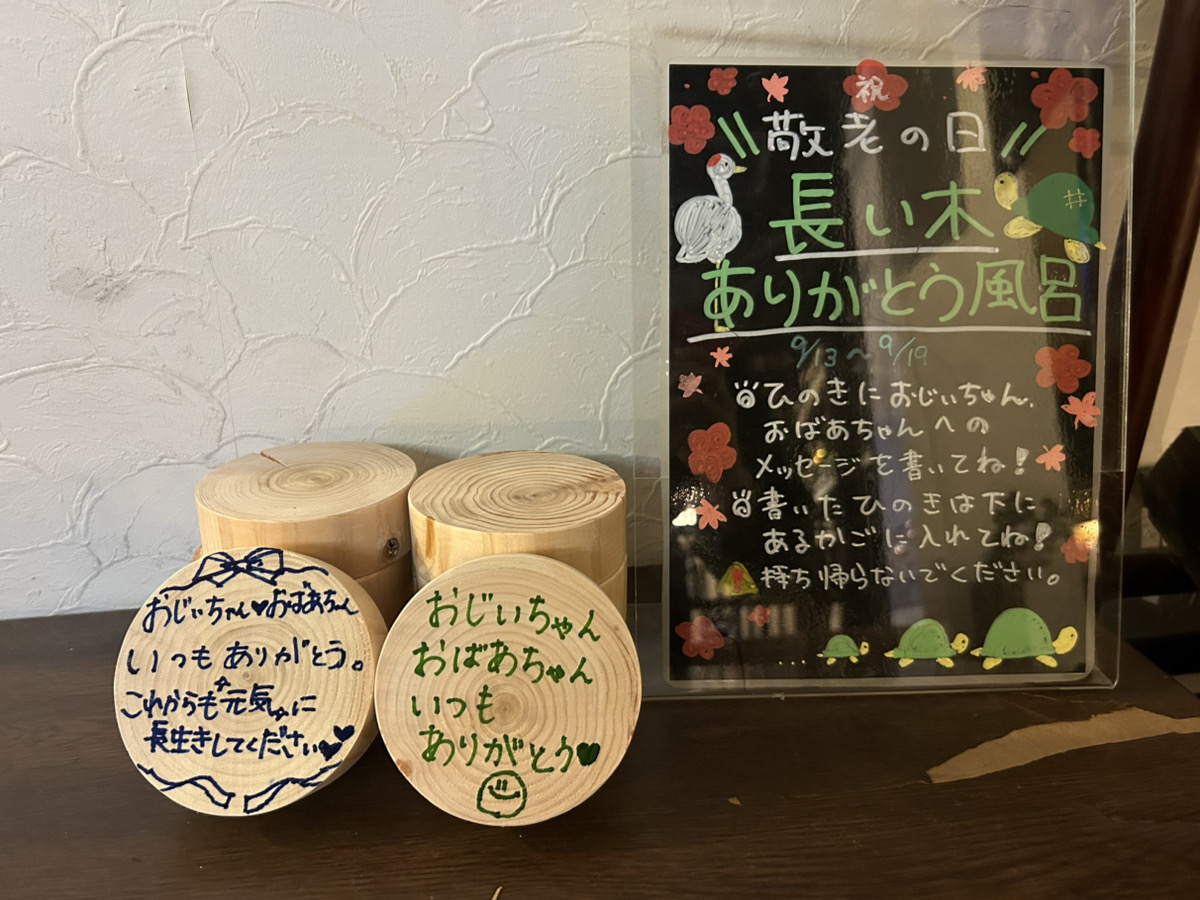 祝
敬老の日
長い木
ありがとう風呂
9/13～9/19
ひのきにおじぃちゃん、
おばあちゃんへの
メッセージを書いてね！
書いたひのきは下に
あるかごに入れてね！
持ち帰らないでください。
おじぃちゃん♥おばあちゃん
いつもありがとう。
これからも元気に
長生きしてください♥♥
おじいちゃん
おばあちゃん
いつも
ありがとう♥